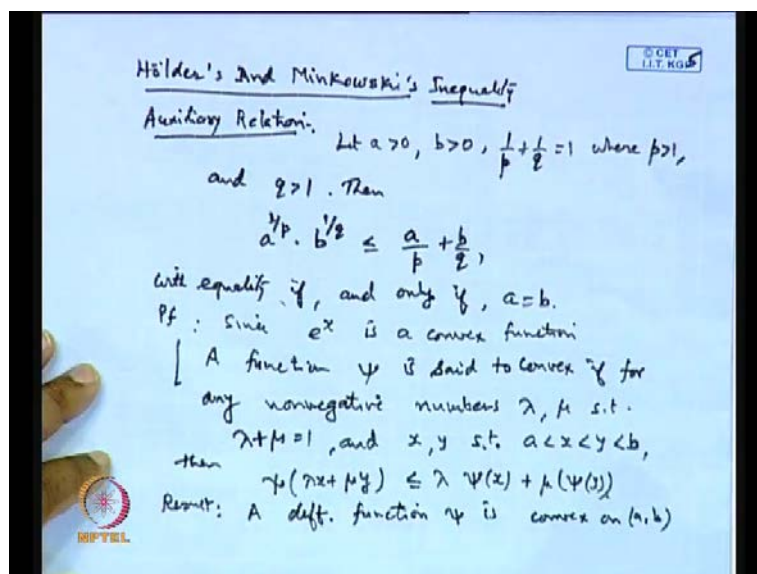 © CET
I.I.T. KGP
Hölder's And Minkowski's Inequality
Auxiliary Relation:
Let a >0, b>0, 1/p + 1/q = 1 where p>1,
and q>1. Then
a^{1/p} · b^{1/q} ≤ a/p + b/q,
with equality if, and only if, a=b.
Pf : Since e^x is a convex function
[ A function ψ is said to convex if for
any nonnegative numbers λ, μ s.t.
λ+μ=1, and x, y s.t. a<x<y<b,
then ψ(λx+μy) ≤ λ ψ(x) + μ(ψ(y))
Result: A diff. function ψ is convex on (a,b)
NPTEL